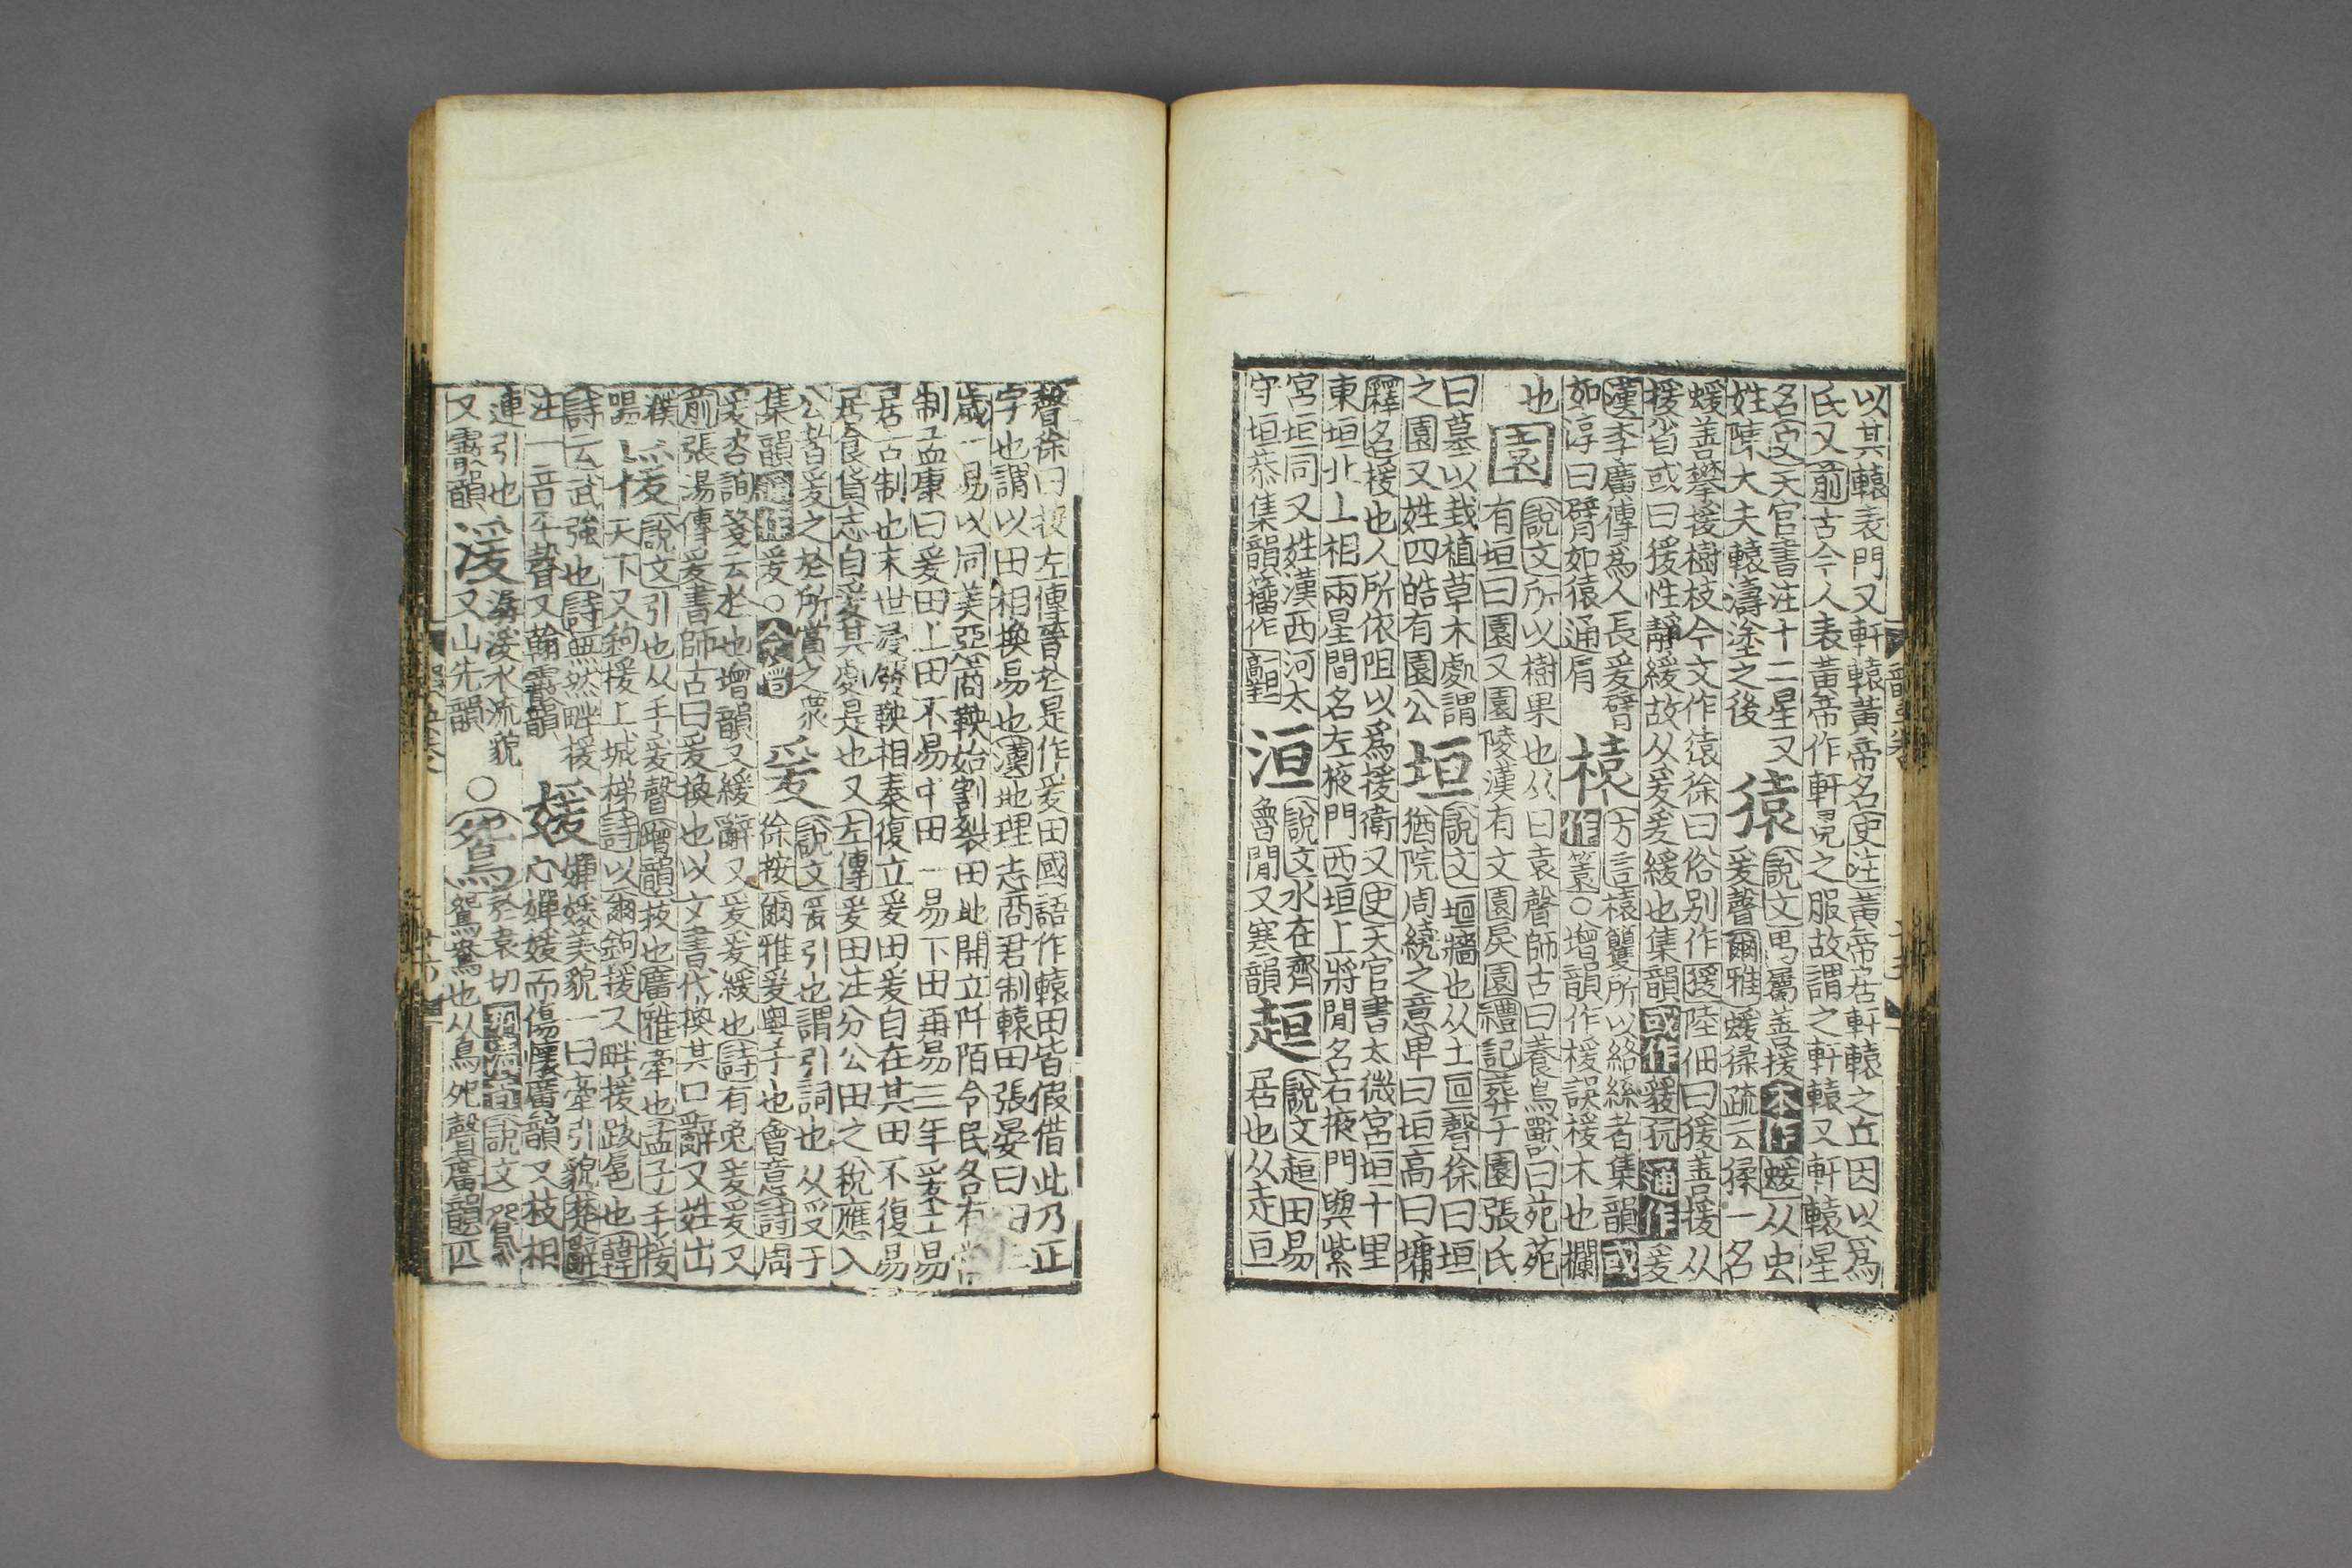 以其轅表門又軒轅黃帝名史注黃帝居軒轅之丘因以爲
氏又前古今人表黃帝作軒轅之服故謂之軒轅又軒轅星
名史天官書注十二星又
姓陳大夫轅濤塗之後
猿
說文禺屬善援本作蝯从虫
爰聲爾雅蝯猱疏云猱一名
蝯善攀援樹枝今文作猿徐曰俗別作猨陸佃曰猨善援从
援省或曰猨性靜緩故从爰爰緩也集韻或作猨狖通作爰
漢李廣傳爲人長爰臂
如淳曰臂如猿通肩
榬
方言榬籰所以絡絲者集韻或
作簑○增韻作楥誤楥木也欄
也
園
說文所以樹果也从囗袁聲師古曰養鳥獸曰苑苑
有垣曰園又園陵漢有文園戾園禮記葬于園張氏
曰墓以栽植草木處謂
之園又姓四皓有園公
垣
說文垣牆也从土亘聲徐曰垣
猶院周繞之意卑曰垣高曰墉
釋名援也人所依阻以爲援衛又史天官書太微宮垣十里
東垣北上相兩星間名左掖門西垣上將間名右掖門與紫
宮垣同又姓漢西河太
守垣恭集韻籀作𩫖
洹
說文水在齊
魯間又寒韻
趄
說文趄田易
居也从走亘
聲徐曰按左傳晉於是作爰田國語作轅田皆假借此乃正
字也謂以田相換易也漢地理志商君制轅田張晏曰
歲一易以同美惡商鞅始割裂田地開立阡陌令民各有
制孟康曰爰田上田不易中田一易下田再易三年爰土易
居古制也末世浸廢鞅相秦復立爰田爰自在其田不復易
居食貨志自爰其處是也又左傳爰田注分公田之稅應入
公者爰之於所賞之衆
集韻爾作爰○
爰
說文爰引也謂引詞也从𠬪于
徐按爾雅爰粤于也會意詩周
爰咨詢箋云於也增韻又緩辭又爰爰緩也詩有兔爰爰又
前張湯傳爰書師古曰爰換也以文書代換其口辭又姓出
濮
陽
援
說文引也从手爰聲增韻拔也廣雅牽也孟子手援
天下又鉤援上城梯詩以爾鉤援又畔援跋扈也韓
詩云武強也詩無然畔援
注一音平聲又翰霰韻
媛
嬋媛美貌一曰牽引貌楚辭
心嬋媛而傷懷廣韻又枝相
連引也
又霰韻
湲
潺湲水流貌
又山先韻
○
鴛
於袁切說文鴛
鴛鴦也从鳥夗聲廣韻匹